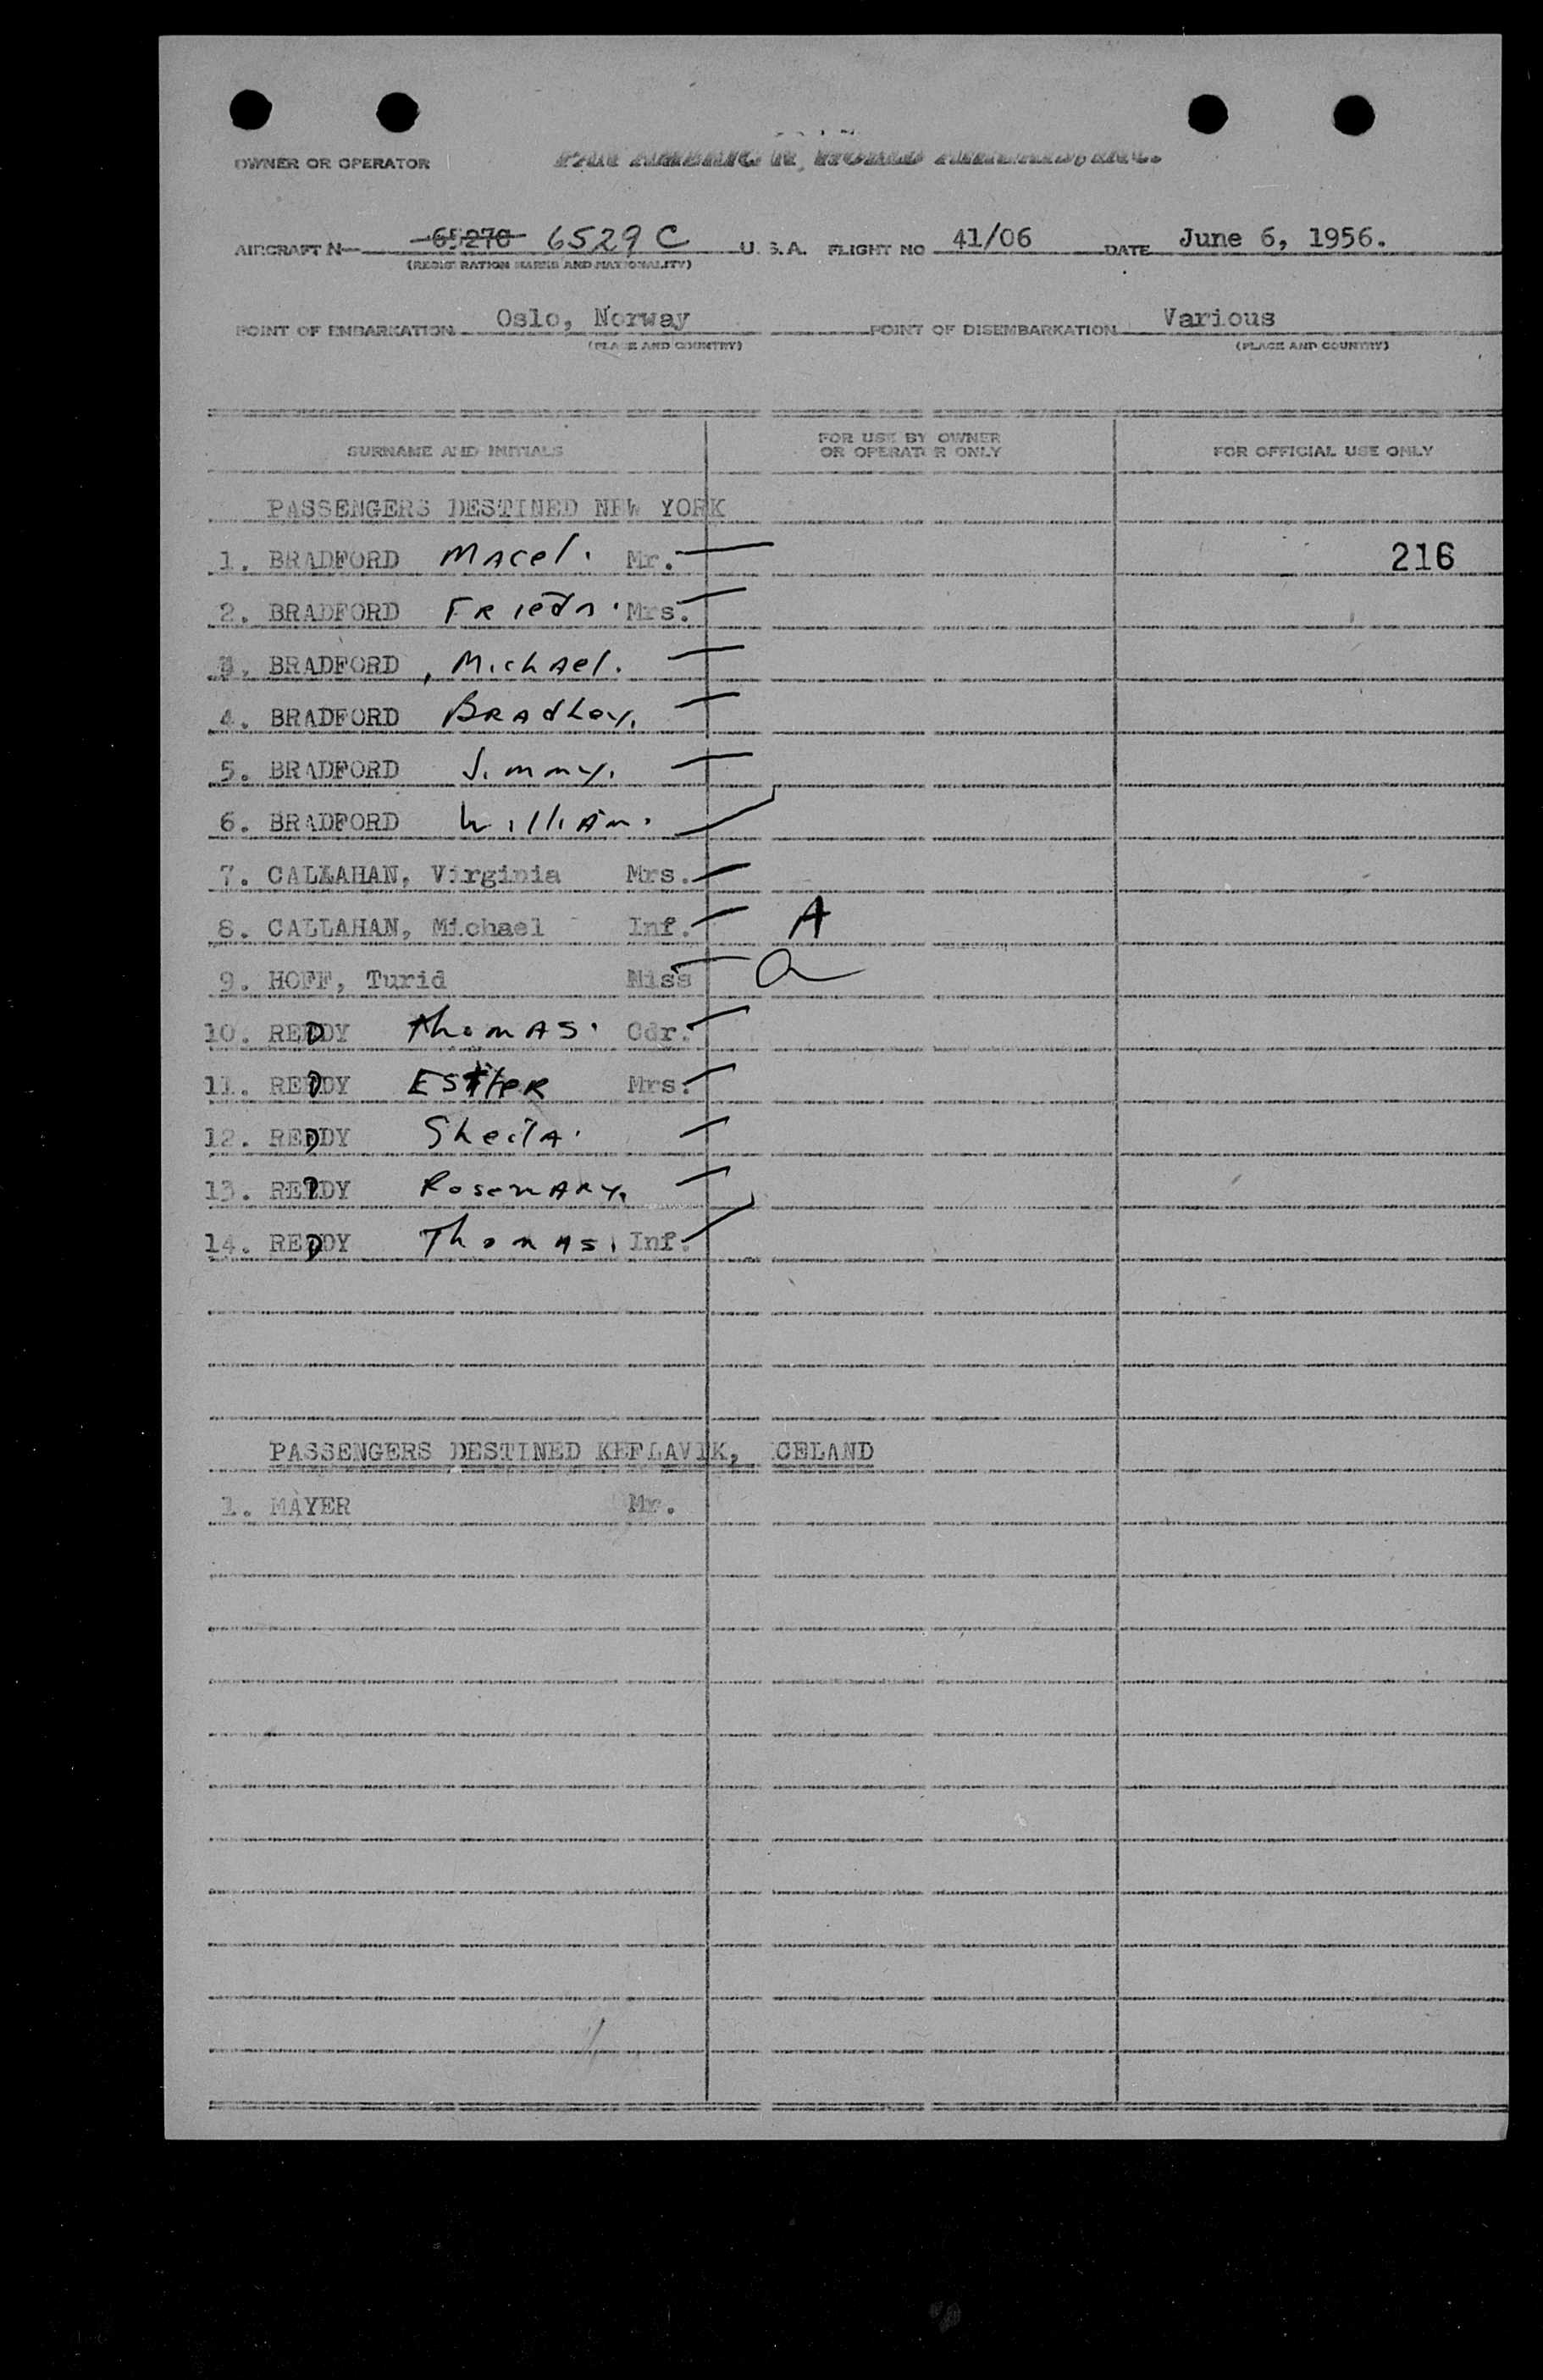 OWNER OR OPERATOR PAN AMERICAN WORLD AIRWAYS, INC.
AIRCRAFT N 6527C 6529C U.S.A. FLIGHT NO 41/06 DATE June 6, 1956.
(REGISTRATION MARKS AND NATIONALITY)
POINT OF EMBARKATION Oslo, Norway POINT OF DISEMBARKATION Various
(PLACE AND COUNTRY) (PLACE AND COUNTRY)
SURNAME AND INITIALS FOR USE BY OWNER OR OPERATOR ONLY FOR OFFICIAL USE ONLY
PASSENGERS DESTINED NEW YORK
1. BRADFORD Macel. Mr. 216
2. BRADFORD Frieda. Mrs.
3. BRADFORD, Michael.
4. BRADFORD Bradley.
5. BRADFORD Jimmy.
6. BRADFORD William.
7. CALLAHAN, Virginia Mrs.
8. CALLAHAN, Michael Inf. A
9. HOFF, Turid Miss a
10. REDDY Thomas. Cdr.
11. REDDY Esther Mrs.
12. REDDY Sheila.
13. REDDY Rosemary.
14. REDDY Thomas. Inf.
PASSENGERS DESTINED KEFLAVIK, ICELAND
1. MAYER Mr.